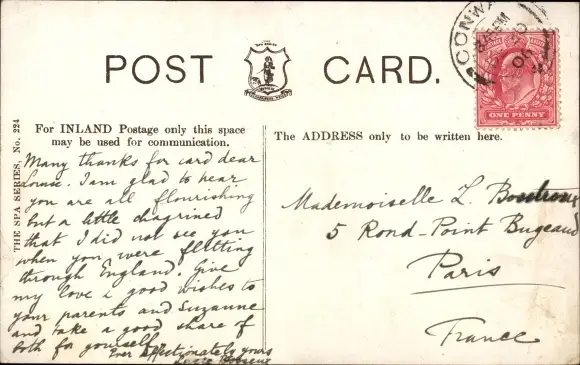 CONWAY
POST CARD.
ONE PENNY
THE SPA SERIES. No. 224
For INLAND Postage only this space
may be used for communication.
The ADDRESS only to be written here.
Many thanks for card dear
Louie. I am glad to hear
you are all flourishing
but a little chagrined
that I did not see you
when you were flitting
through England. Give
my love & good wishes to
your parents and Suzanne
and take a good share of
both for yourself.
Ever affectionately yours
Mademoiselle L.
5 Rond-Point Bugeaud
Paris
France